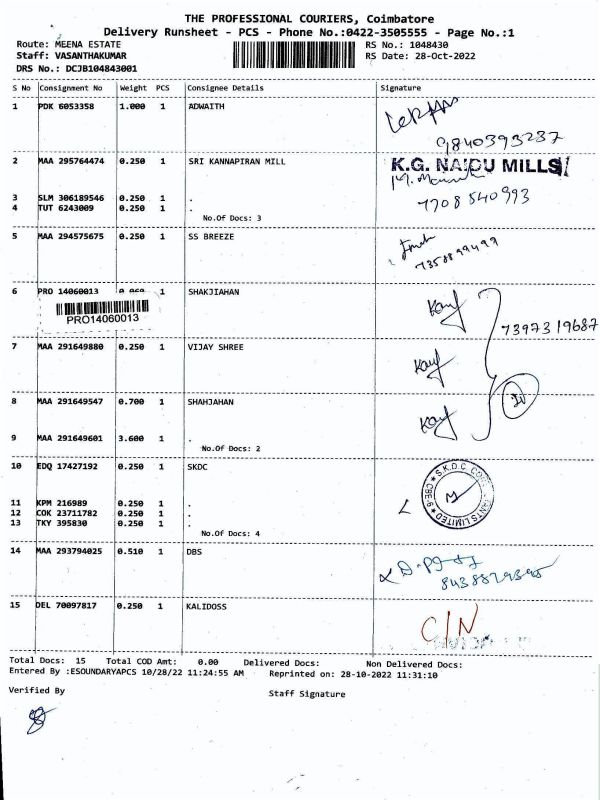 THE PROFESSIONAL COURIERS, Coimbatore
Delivery Runsheet - PCS - Phone No.:0422-3505555 - Page No.:1
Route: MEENA ESTATE RS No.: 1048430
Staff: VASANTHAKUMAR RS Date: 28-Oct-2022
DRS No.: DCJB104843001
S No Consignment No Weight PCS Consignee Details Signature
1 PDK 6053358 1.000 1 ADWAITH
9840393237
2 MAA 295764474 0.250 1 SRI KANNAPIRAN MILL K.G. NAIDU MILLS
3 SLM 306189546 0.250 1 .
7708540993
4 TUT 6243009 0.250 1 .
No.Of Docs: 3
5 MAA 294575675 0.250 1 SS BREEZE
7358899499
6 PRO 14060013 1 SHAKJIAHAN
PRO14060013
7397319687
7 MAA 291649880 0.250 1 VIJAY SHREE
8 MAA 291649547 0.700 1 SHAHJAHAN
9 MAA 291649601 3.600 1 .
No.Of Docs: 2
10 EDQ 17427192 0.250 1 SKDC
S.K.D.C. CONSULTANTS LIMITED CBE-6
11 KPM 216989 0.250 1 .
12 COK 23711782 0.250 1 .
13 TKY 395830 0.250 1 .
No.Of Docs: 4
14 MAA 293794025 0.510 1 DBS
15 DEL 70097817 0.250 1 KALIDOSS
C/N
Total Docs: 15 Total COD Amt: 0.00 Delivered Docs: Non Delivered Docs:
Entered By :ESOUNDARYAPCS 10/28/22 11:24:55 AM Reprinted on: 28-10-2022 11:31:10
Verified By Staff Signature